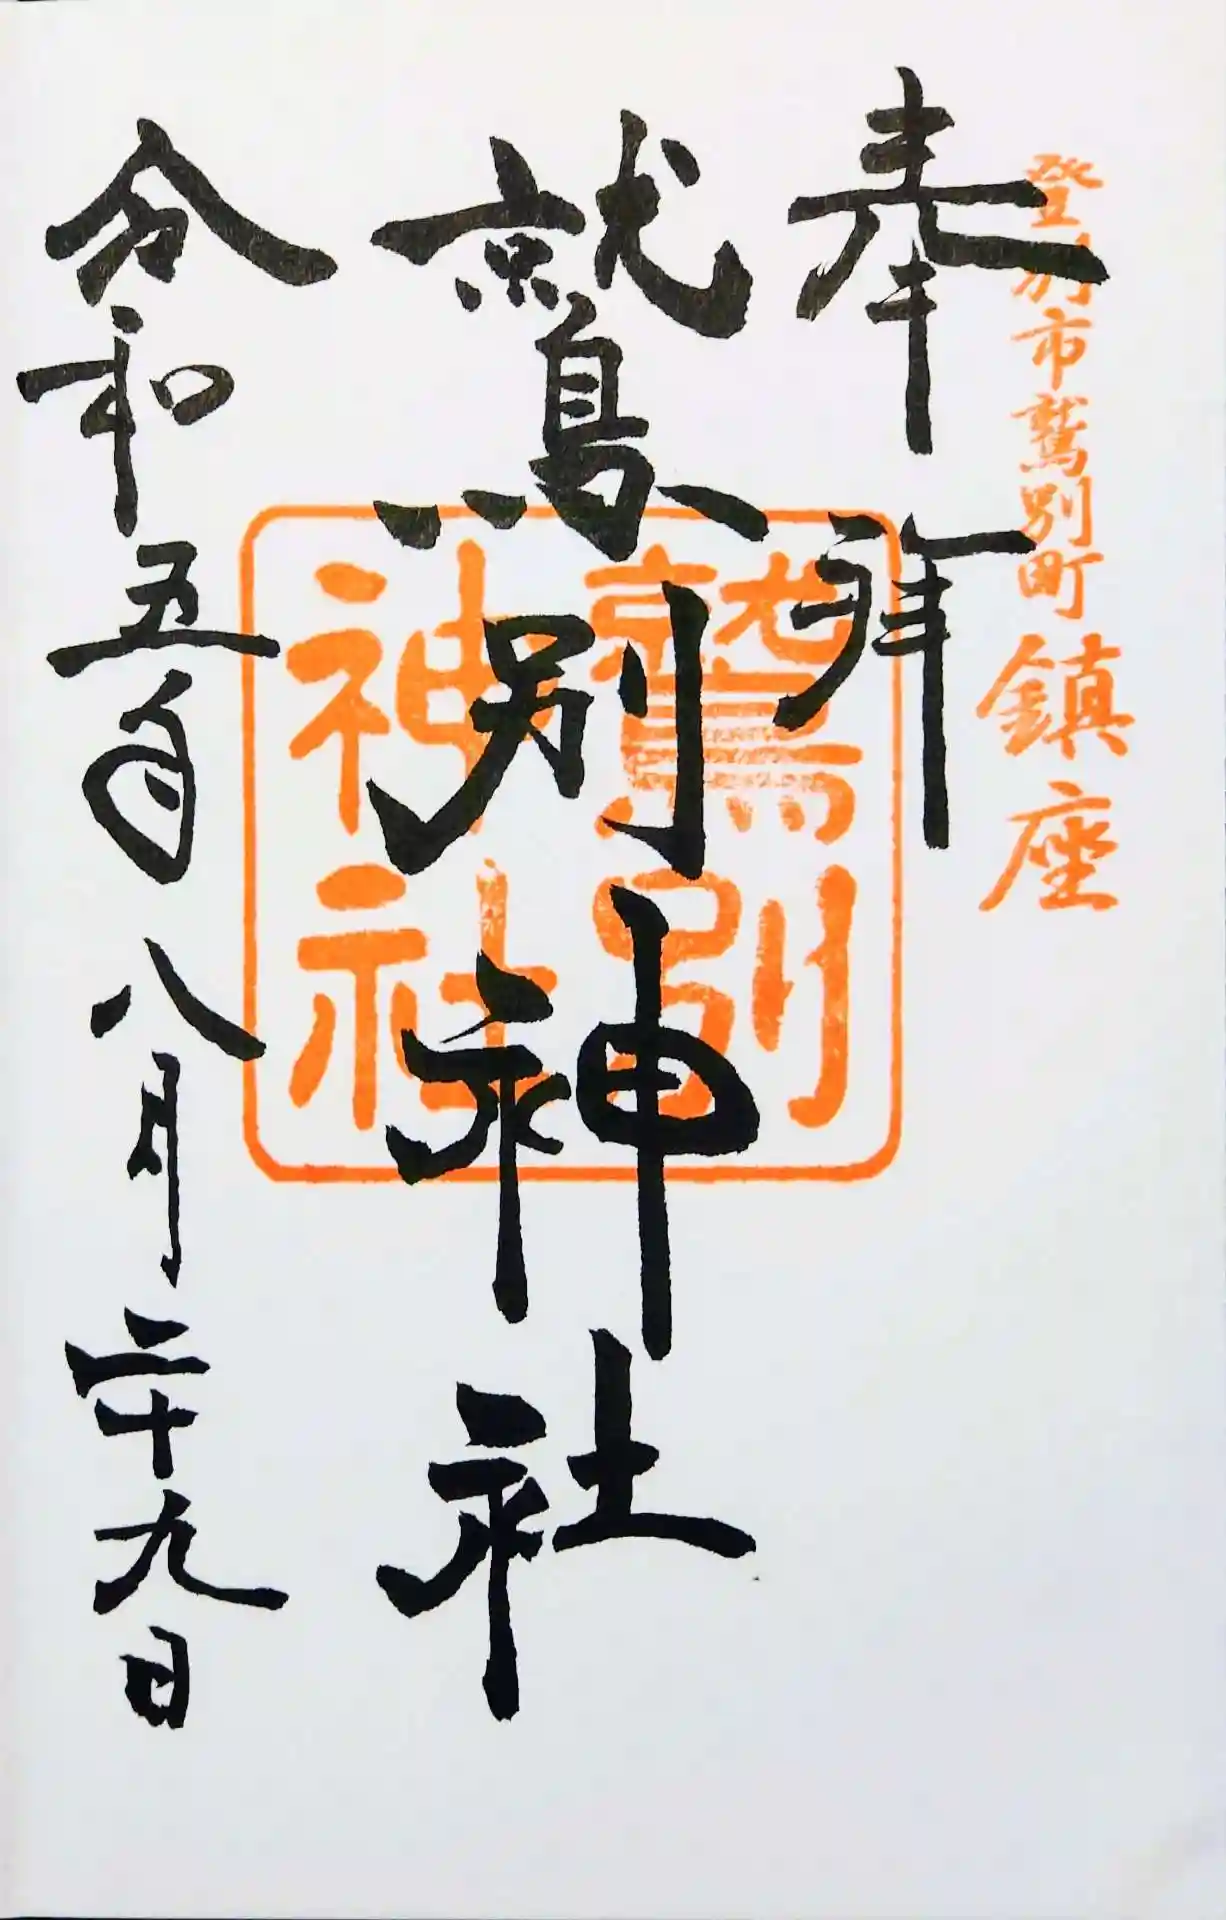 登別市鷲別町鎮座
奉拝
鷲別神社
鷲別
神社
令和五年八月二十九日